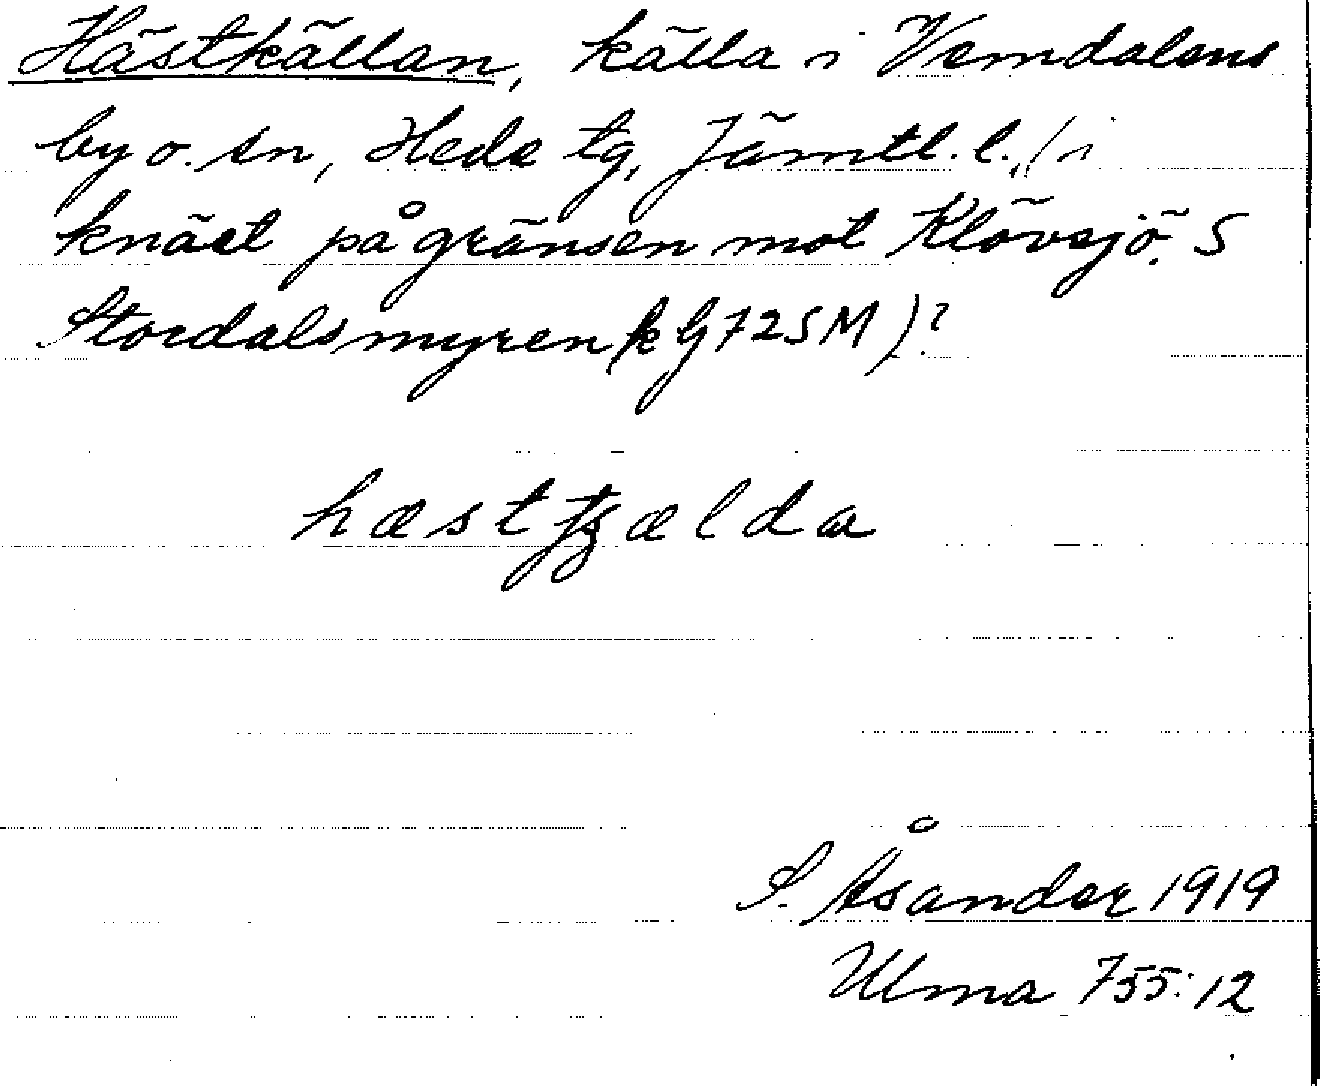 Hästkällan, källa i Vemdalens
by o. sn, Hede tg, Jämtl. l., (i
knäet på gränsen mot Klövsjö, S
Stordalsmyren (k G72SM)?
hæst ʃɡælda
S. Åsander 1919
Ulma 755:12